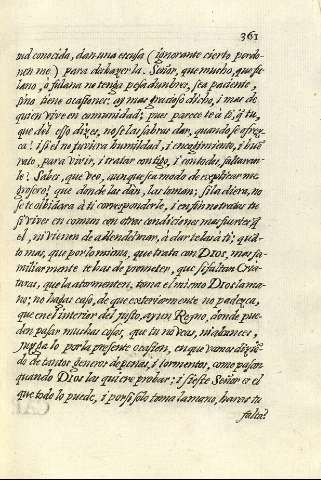 361
ud conocida, dan una escusa (ignorante cierto perdo-
nenme) para deshazerla. Señor, que mucho, que fu-
lano, o fulana no tenga pesadumbres, sea paciente,
sino tiene ocasiones. ay mas gracioso dicho, i mas de
quien vive en comunidad; pues parece te à ti, ò tu,
que de esso dizes, no se las sabràs dar, quando se ofrez-
ca! i si el no tuviera humildad, i encogimiento, i buē
rato, para vivir, i tratar contigo, i con todos, faltaran-
lo! Sabes, que veo, aunque sea modo de explicarme
grosero! que donde las dàn, las toman; si la diera, no
se te olvidara à ti corresponderle, i en fin no tratas tu
si vives en comun con otros condiciones mas fuertes q̄
el, ni vienen de allende el mar, à dar telas à ti; quā-
to mas, que por lo mismo, que trata con Dios, mas fa-
miliarmente te has de prometer, que si faltan Cria-
turas, que la atormenten, toma el mismo Dios la ma-
no; no hagas caso, de que exteriormente no padezca,
que en el interior del justo, ay un Reyno, donde pue-
den passar muchas cosas, que tu no veas, ni alcances,
juzga lo por la presente ocasion, en que vamos diziē-
do de tantos generos de penas, i tormentos, como passan
quando Dios las quiere probar; i si este Señor es el
que todo lo puede, i por si solo toma la mano, haràs tu
falta?